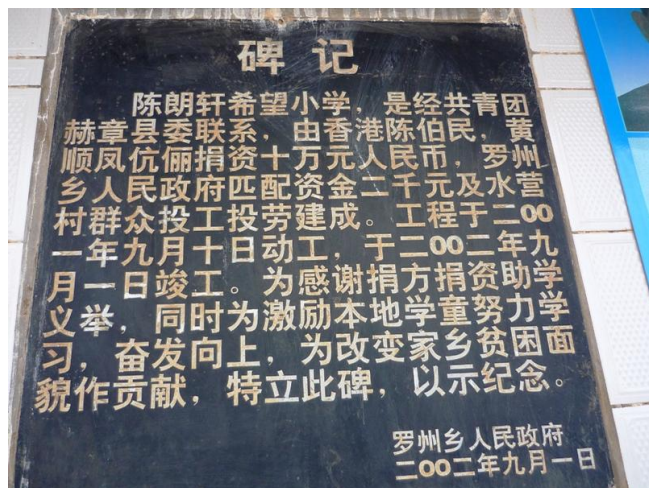 碑记
陈朗轩希望小学，是经共青团
赫章县委联系，由香港陈伯民，黄
顺凤伉俪捐资十万元人民币，罗州
乡人民政府匹配资金二千元及水营
村群众投工投劳建成。工程于二00
一年九月十日动工，于二00二年九
月一日竣工。为感谢捐方捐资助学
义举，同时为激励本地学童努力学
习，奋发向上，为改变家乡贫困面
貌作贡献，特立此碑，以示纪念。
罗州乡人民政府
二00二年九月一日